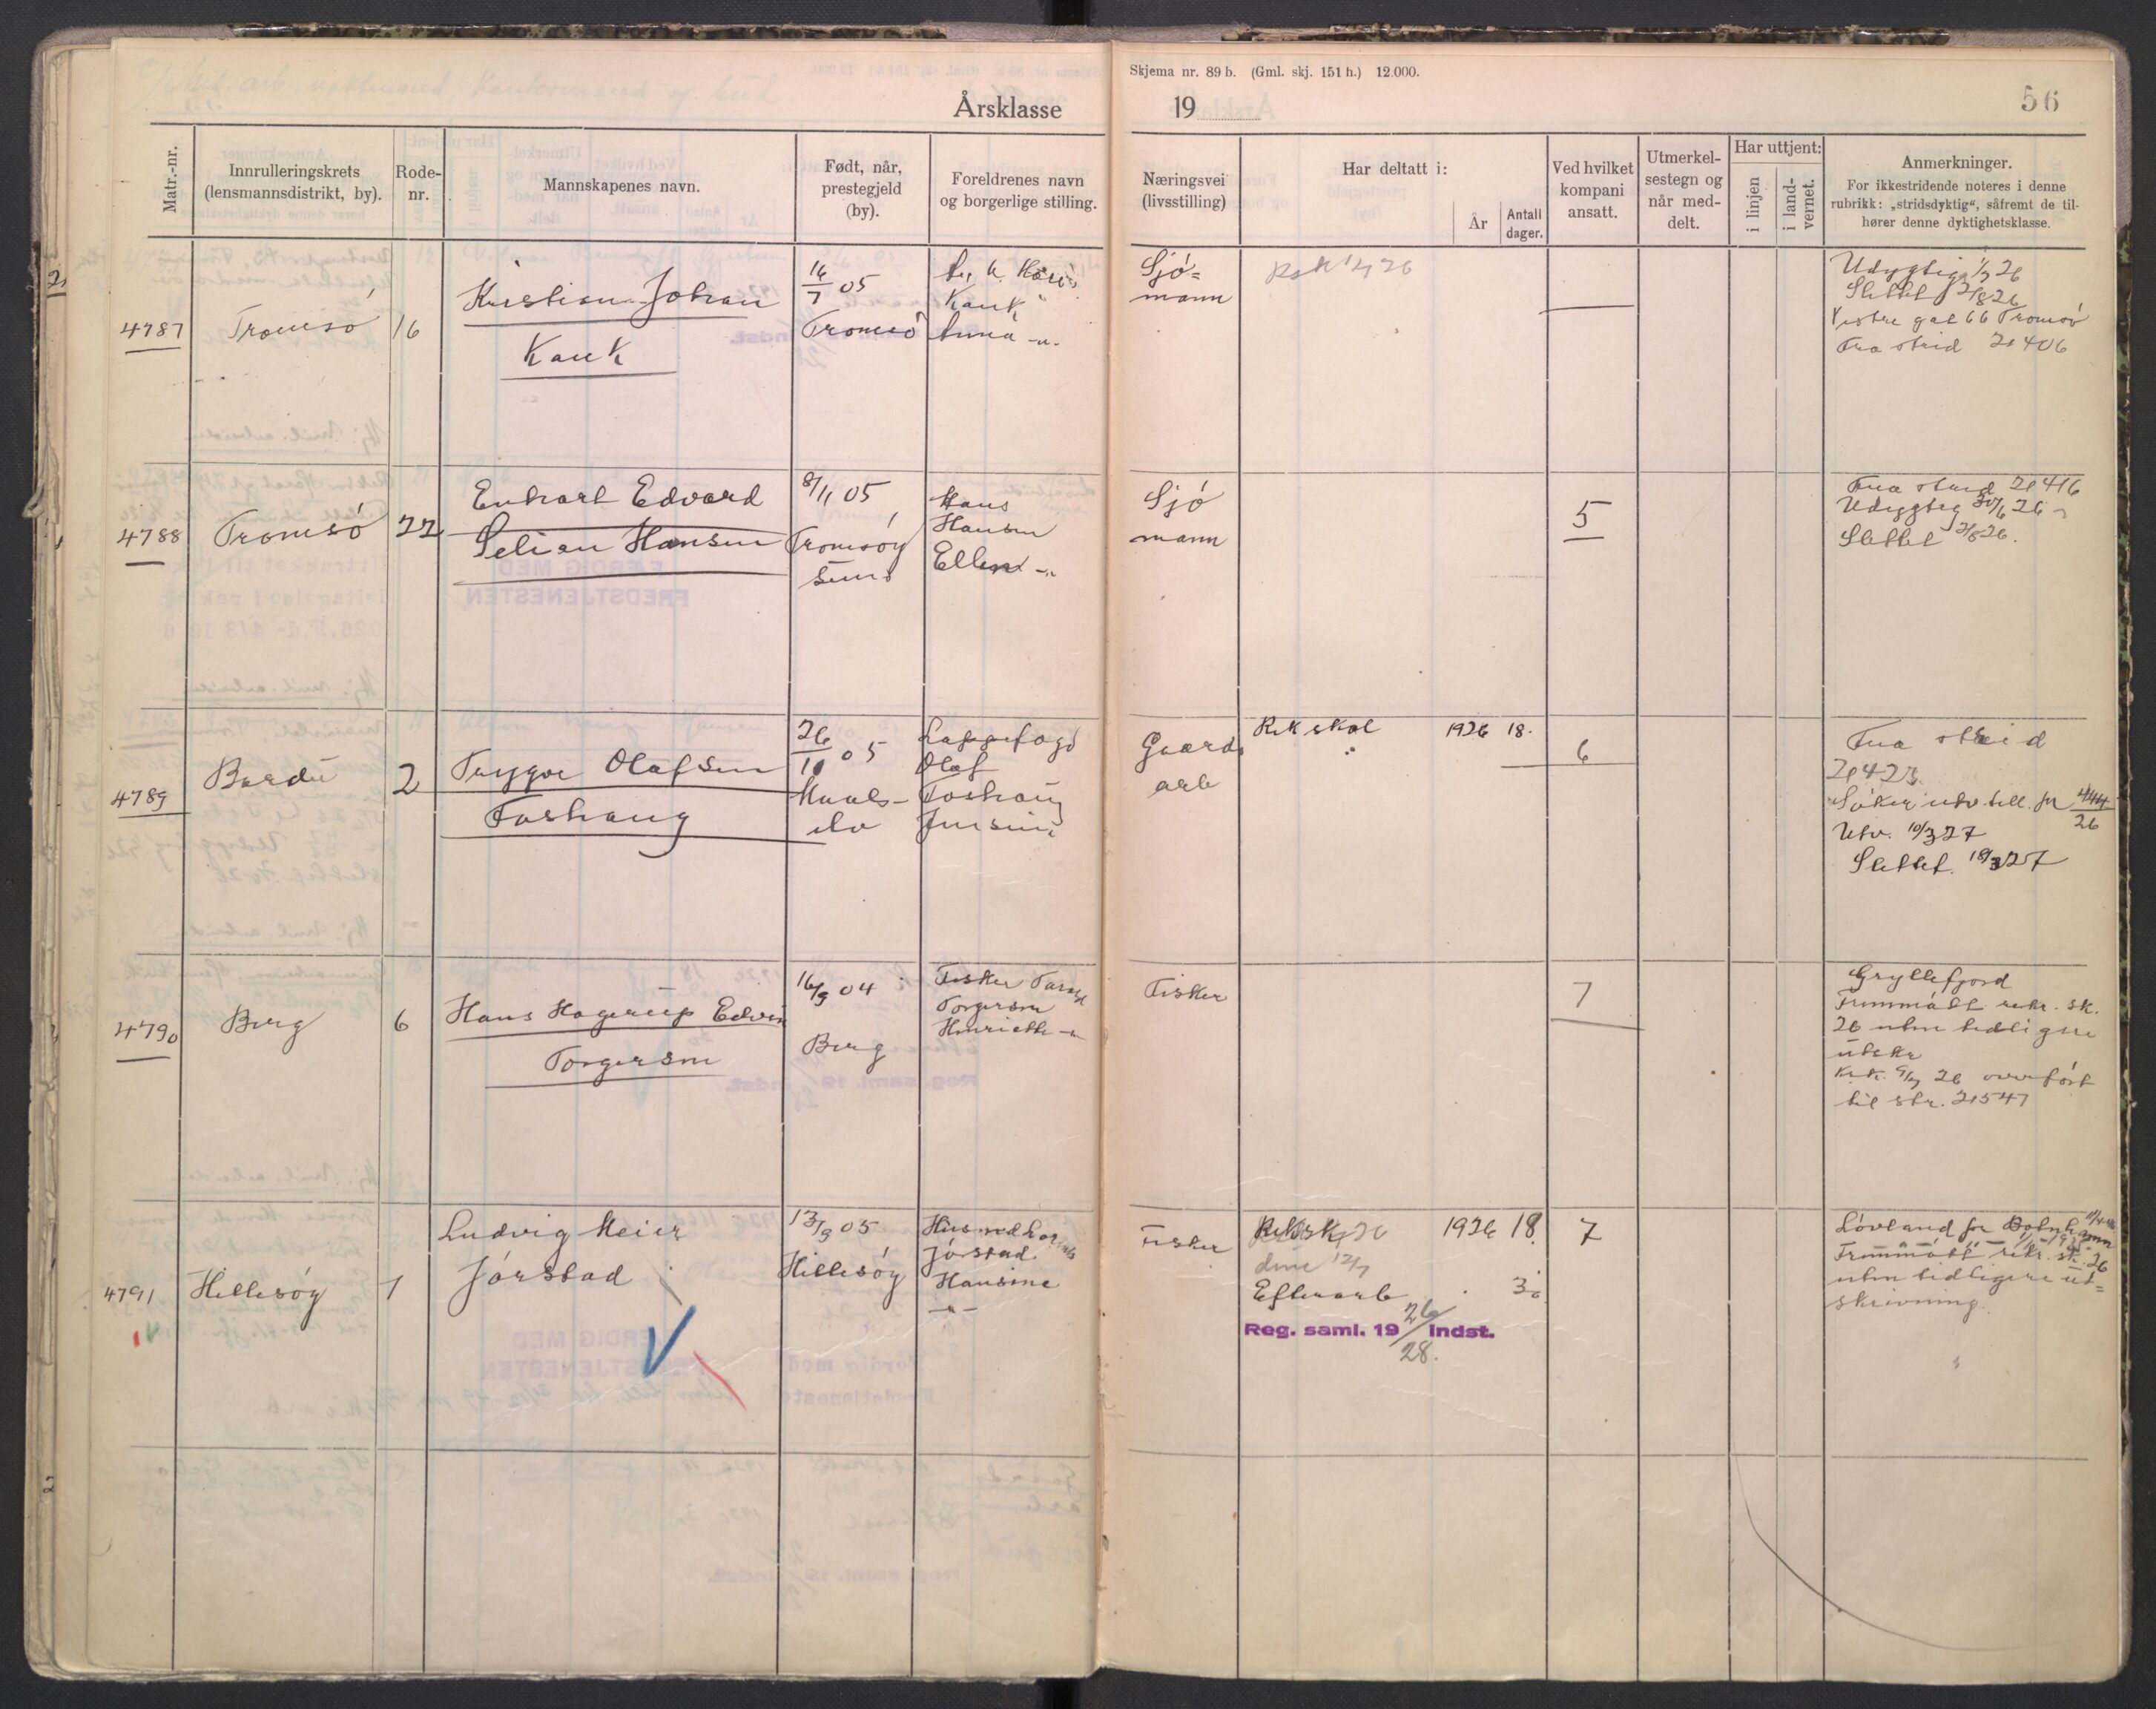 Skjema nr. 89 b. (Gml. skj. 151 h.) 12.000.
Årsklasse 19
56
Matr.-nr.
Innrulleringskrets
(lensmannsdistrikt, by).
Rode-
nr.
Mannskapenes navn.
Født, når,
prestegjeld
(by).
Foreldrenes navn
og borgerlige stilling.
Næringsvei
(livsstilling)
Har deltatt i:
År
Antall
dager.
Ved hvilket
kompani
ansatt.
Utmerkel-
sestegn og
når med-
delt.
Har uttjent:
i linjen
i land-
vernet.
Anmerkninger.
For ikkestridende noteres i denne
rubrikk: „stridsdyktig“, såfremt de til-
hører denne dyktighetsklasse.
4787
Tromsö
16
Kristian Johan
Kauk
16/7 05
Tromsö
Kauk
Anna -"-
Sjö=
mann
26
Udygtig 1/7 26
Slettet 21/8 26
Vestre gat 66 Tromsö
Fra strid 21406
4788
Tromsö
22
Enhart Edvard
Selian Hansen
8/11 05
Tromsöy
sund
Hans
Hansen
Ellen -"-
Sjö
mann
5
Fra strid 21416
Udygtig 26
Slettet 21/8 26.
4789
Bardu
2
Trygve Olafsen
Foshaug
26/10 05
Maals-
elv
Lappefogd
Olaf
Foshaug
Jensine
Gaards
arb
Rekskol 1926 18.
6
Fra strid
21423
Söker utv. till. jr 444/26
Utv. 10/3 27
Slettet. 18/3 27
4790
Berg
6
Hans Hagerup Edvin
Torgersen
16/9 04
Berg
Fisker
Torgersen
Henriette -"-
Fisker
7
Gryllefjord
Fremmått rekr. sk.
26 uten tidligere
utskr
26 overfört
til str. 21547
4791
Hillesöy
1
Ludvig Meier
Jörstad
13/9 05
Hillesöy
Jörstad.
Hansine
-"-
Fisker
Reksk 1926 18.
dim 12/7
Efterarb 30
Reg. saml. 19 26/28. Indst.
7
Lövland
Fremmått rekr. sk. 26
uten tidligere ut=
skrivning.